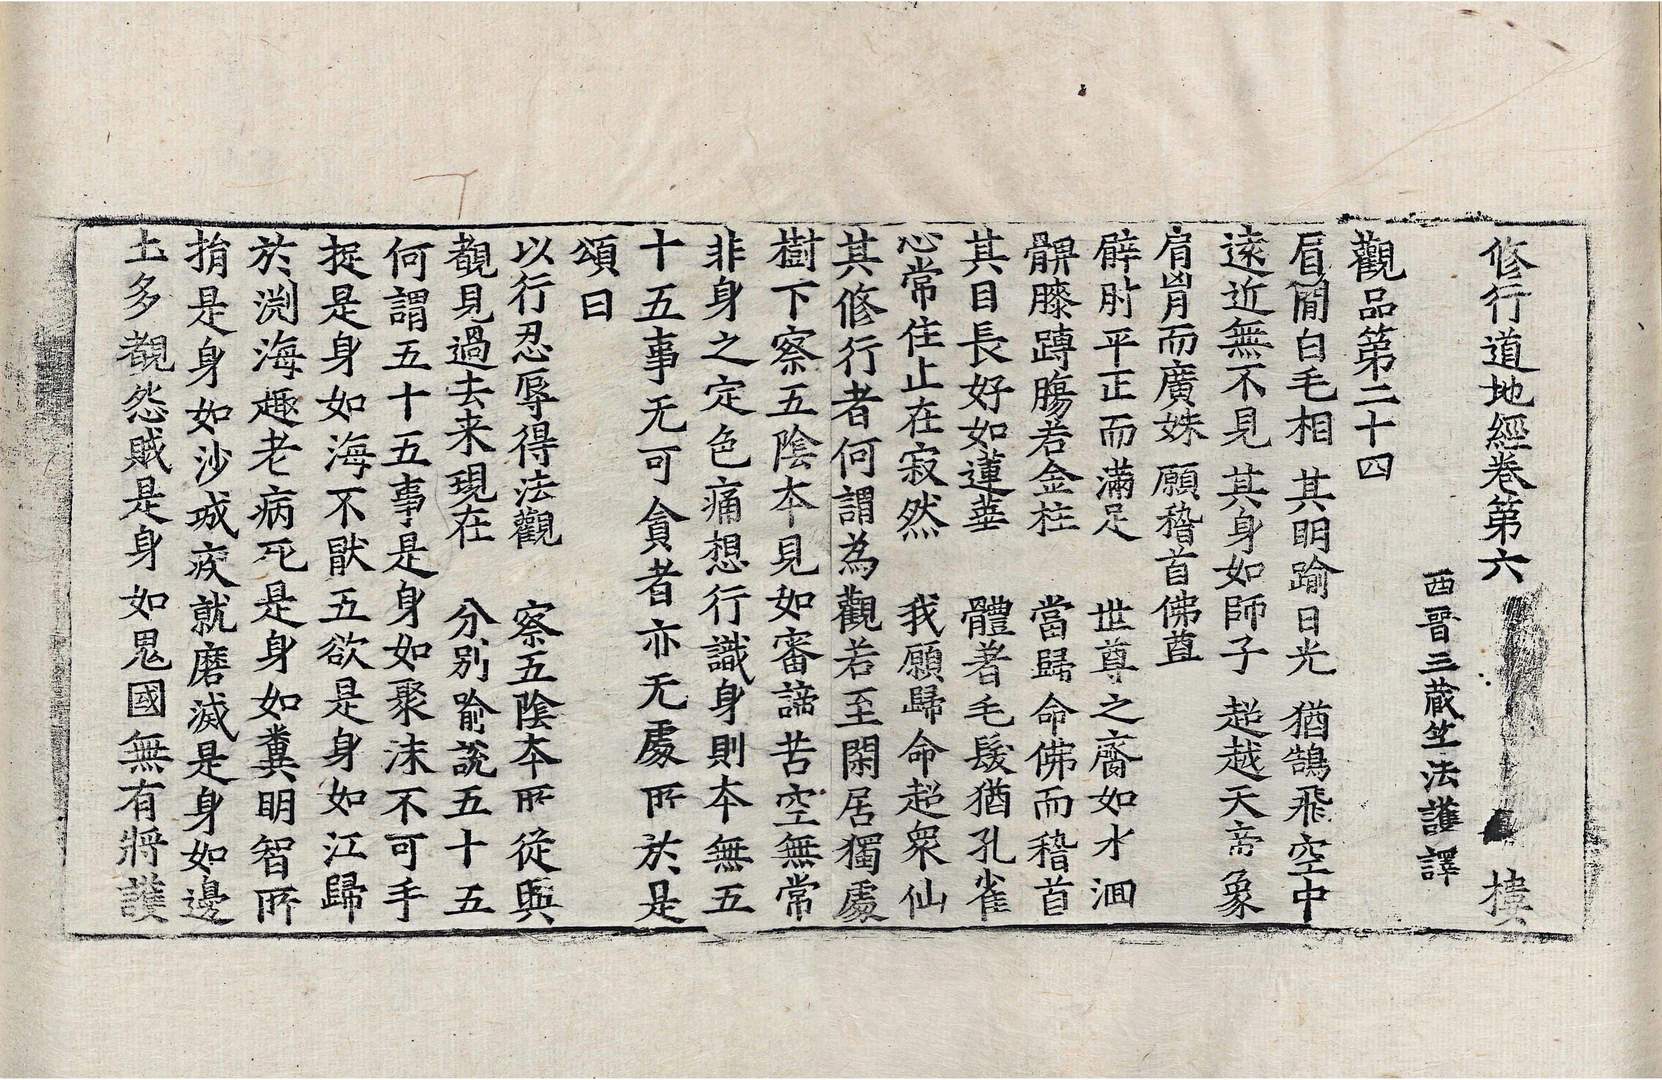 修行道地經卷第六 棲
西晉三藏竺法護譯
觀品第二十四
眉間白毛相 其明踰日光 猶鵠飛空中
遠近無不見 其身如師子 超越天帝象
肩𦙄而廣姝 願稽首佛尊
臂肘平正而滿足 世尊之齋如水洄
髀膝䏝腸若金柱 當歸命佛而稽首
其目長好如蓮華 體著毛髮猶孔雀
心常住止在寂然 我願歸命超衆仙
其修行者何謂為觀若至閑居獨處
樹下察五陰本見如審諦苦空無常
非身之定色痛想行識身則本無五
十五事无可貪者亦无處所於是
頌曰
以行忍辱得法觀 察五陰本所從與
覩見過去来現在 分別喻說五十五
何謂五十五事是身如聚沫不可手
捉是身如海不猒五欲是身如江歸
於渊海趣老病死是身如糞明智所
捐是身如沙城疾就磨滅是身如邊
土多覩怨賊是身如鬼國無有將護